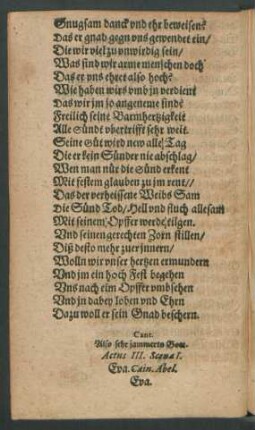 Gnugsam danck vnd ehr beweisen?
Das er gnad gegn vns gewendet ein/
Die wir viel zu vnwirdig sein/
Was sind wir arme menschen doch
Das er vns ehret also hoch?
Wie haben wirs vmb jn verdient
Das wir jm so angeneme sind?
Freilich seine Barmhertzigkeit
Alle Sünde vbertrifft sehr weit.
Seine Güt wird new alle Tag
Die er kein Sünder nie abschlag/
Wen man nür die Sünd erkent
Mit festem glauben zu jm rent//
Das der verheissene Weibs Sam
Die Sünd Tod/Hell vnd fluch allesam
Mit seinem Opffer werde tilgen.
Vnd seinen gerechten Zorn stillen/
Diß desto mehr zuerinnern/
Wolln wir vnser hertzen ermundern
Vnd jm ein hoch Fest begehen
Vns nach eim Opffer vmbsehen
Vnd jn dabey loben vnd Ehrn
Dazu woll er sein Gnad beschern.
Cant.
Also sehr jammerts Gott.
Actus III. Scena I.
Eva. Cain. Abel.
Eva.